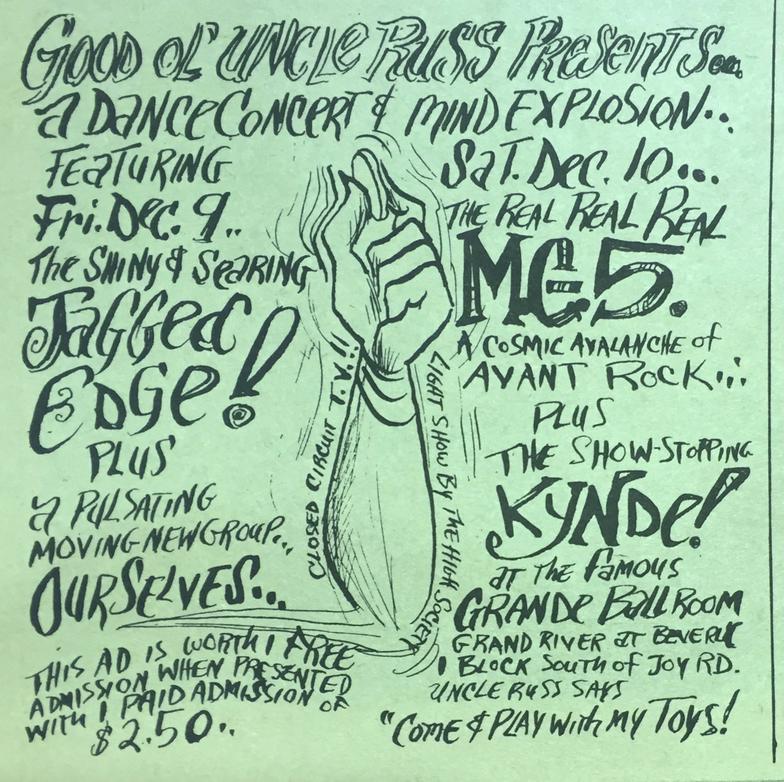 GOOD OL' UNCLE RUSS PRESENTS...
a DANCE CONCERT & MIND EXPLOSION..
FEATURING
Fri. Dec. 9..
The SHINY & SEARING
JAGGED
EDGE!
PLUS
a PULSATING
MOVING NEW GROUP...
OURSELVES...
THIS AD IS WORTH 1 FREE
ADMISSION WHEN PRESENTED
WITH 1 PAID ADMISSION OF
$2.50..
CLOSED CIRCUIT T.V.!!
LIGHT SHOW BY THE HIGH SOCIETY
SAT. DEC. 10...
THE REAL REAL REAL
MC-5.
A COSMIC AVALANCHE of
AVANT ROCK...
PLUS
THE SHOW-STOPPING
KYNDE!
at THE FAMOUS
GRANDE BALLROOM
GRAND RIVER at BEVERLY
1 BLOCK SOUTH of JOY RD.
UNCLE RUSS SAYS
"COME & PLAY with MY TOYS!